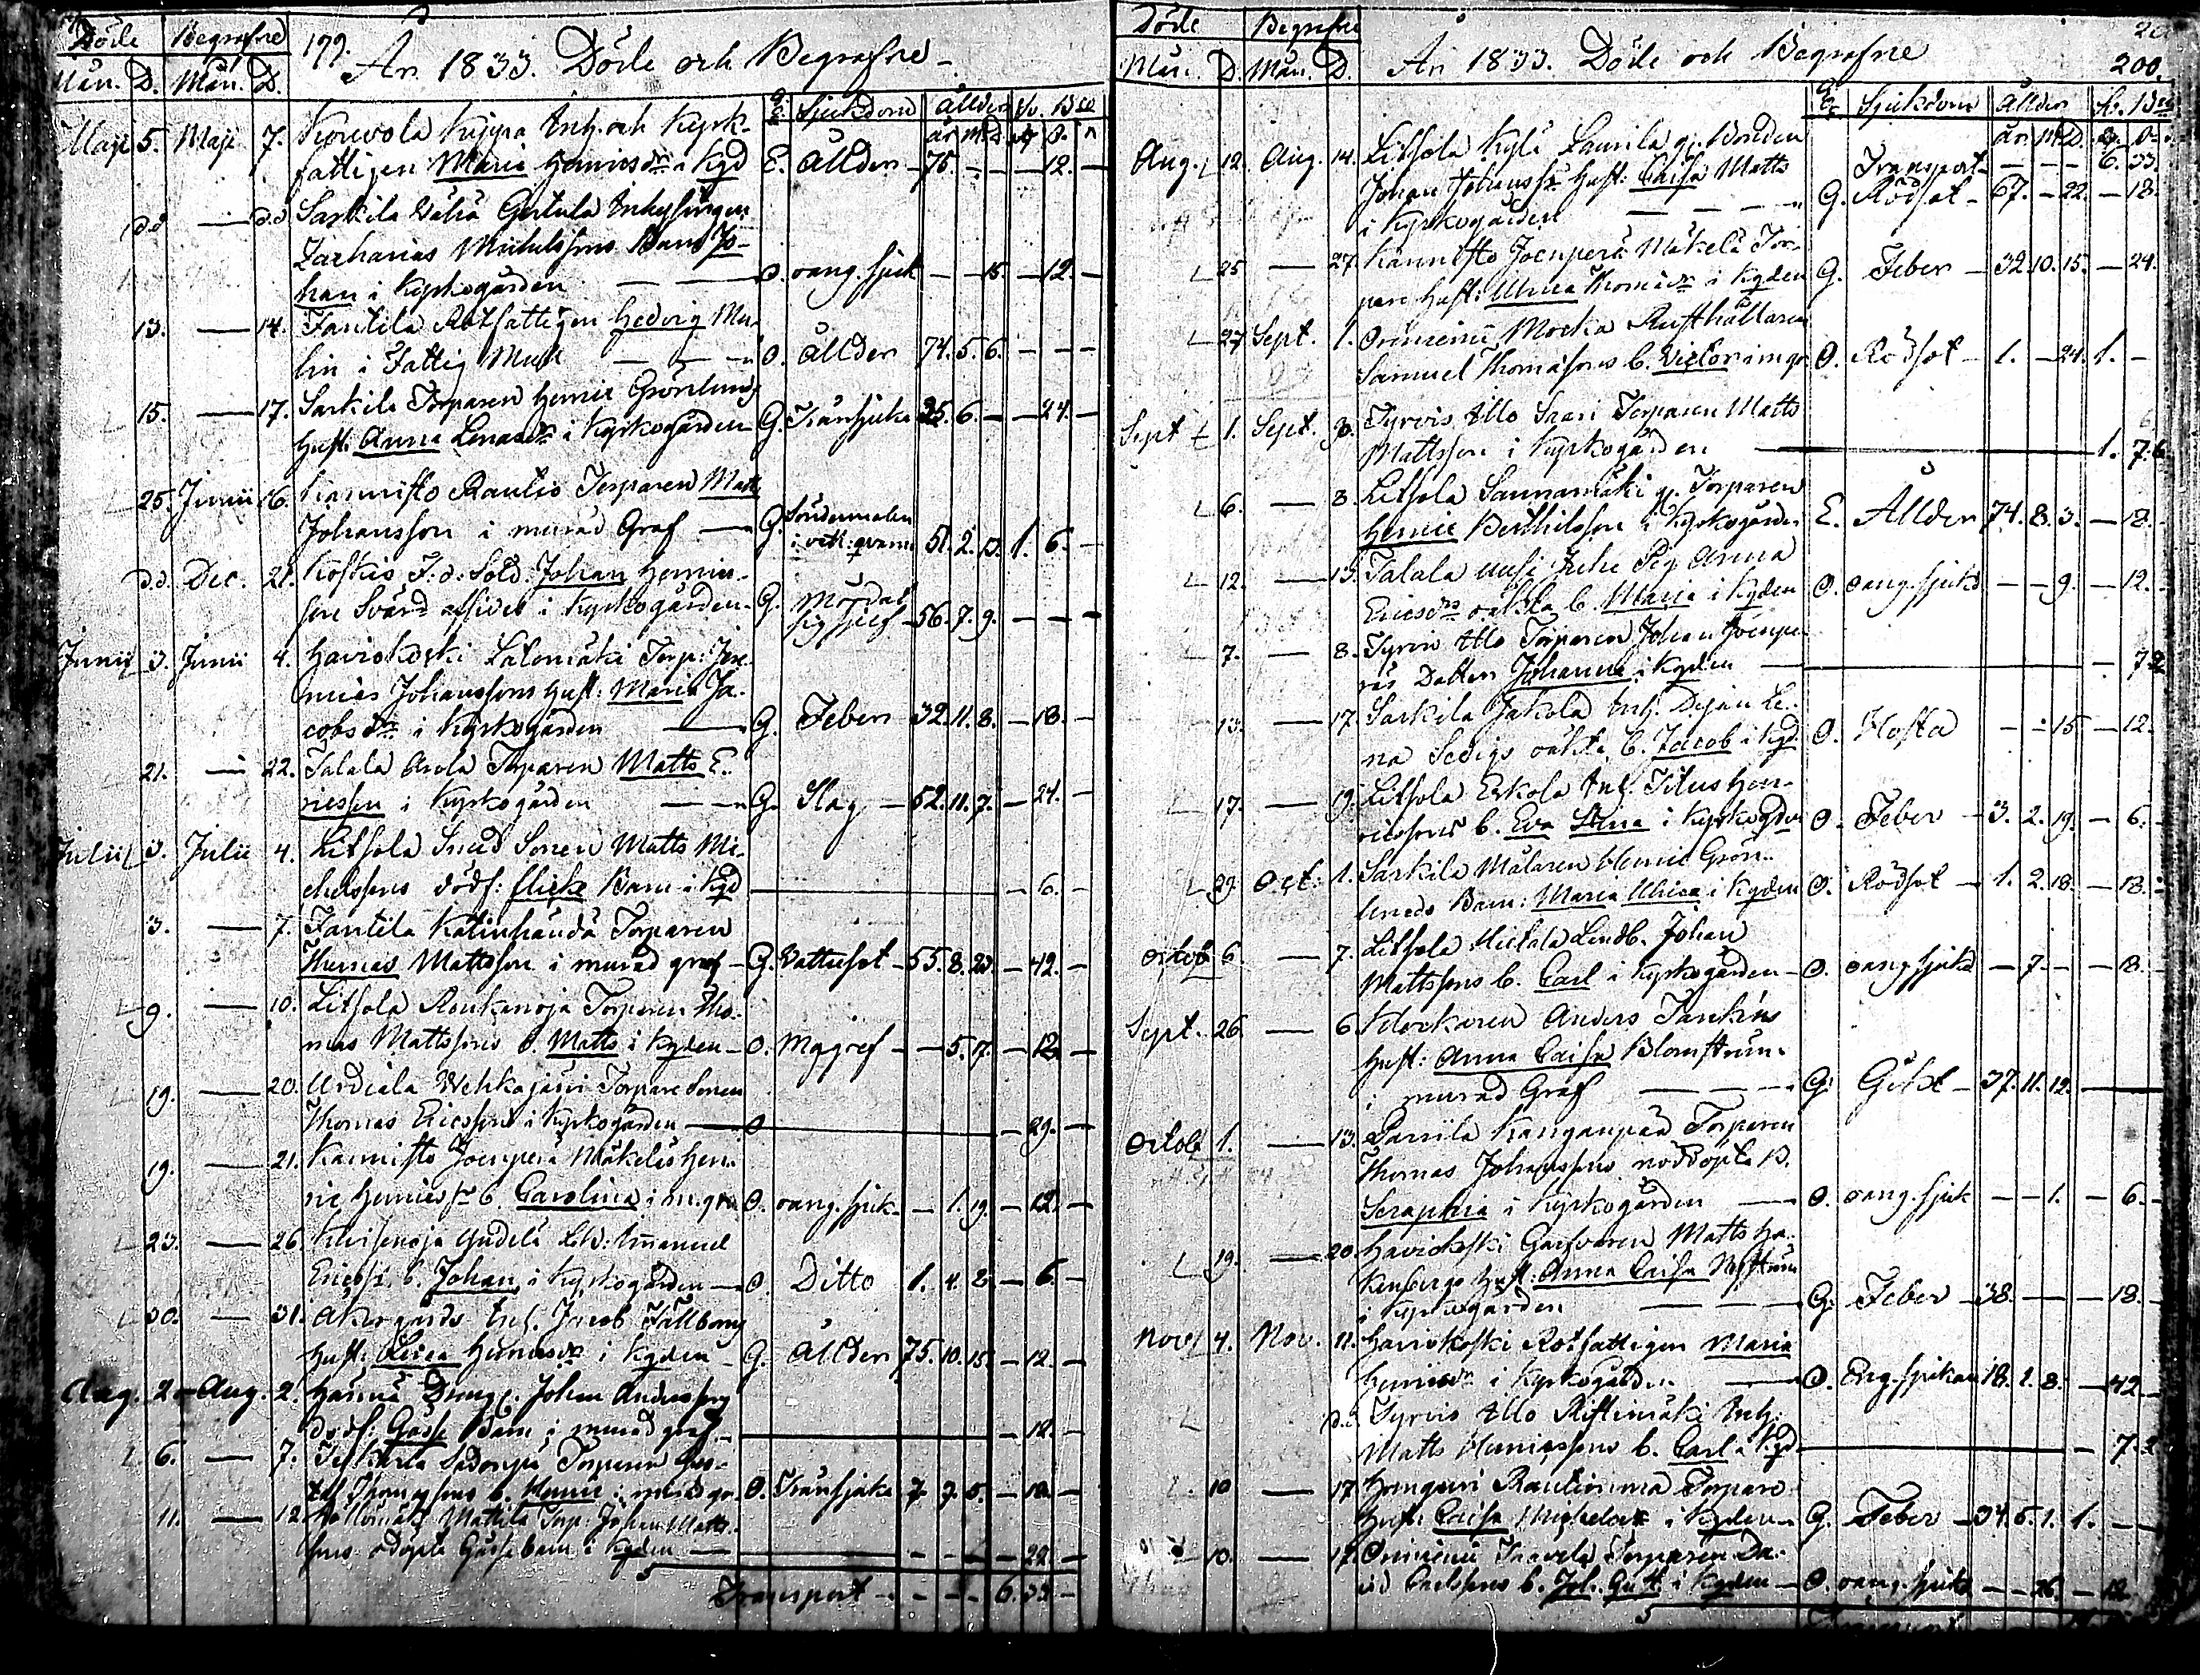 Döde Begrafne 199. År 1833. Döde och Begrafne
Mån. D. Mån. D.
Sjukdom Ållder Sv. Bco
år M D
Maji 5. Maji 7. Kyrvola Kyppa Inh. och Kyrk-
fattigen Maria Henricsdr i Kygd E. Ållder 75. 12.
dd dd Sarkila Gertula Inhysingen
Zacharias Michelssons Barn Jo-
han i Kyrkogården O. oang. sjuk 15. 12.
13. 14. Fantila Rotfattigen Hedvig Ma-
lin i Fattig Mull O. Ållder 74. 5. 6.
15. 17. Sarkila Torparen Henric Grönlunds
Hust: Anna Lenasdr i Kyrkogården G. Tränsjuka 25. 6. 24.
25. Junii 16. Kannisto Rautio Torparen Matts
Johansson i murad Graf G. 51. 2. 13. 1. 6.
dd. Dec. 21. Koskis F. d. Sold: Johan Henric-
son Svärd i Kyrkogården G. Mördat sig sjelf 56. 7. 9.
Junii 3. Junii 4. Haviokoski Latomäki Torp: Jere-
mias Johanssons Hust: Maria Ja-
cobsdr i Kyrkogården G. Feber 32. 11. 8. 18.
21. 22. Talala Arola Torparen Matts E-
ricsson i Kyrkogården G. Slag 52. 11. 7. 24.
Julii 3. Julii 4. Litsola Smed Sonen Matts Mi-
chelssons dödf: flicke Barn i Kygd 6.
3. 7. Fantila Katinhändä Torparen
Thomas Mattsson i murad graf G. Vattusot 55. 8. 23 42.
9. 10. Litsola Roukanoja Torparen Tho-
mas Mattssons b. Matts i Kygden O. Magref 5. 17. 12.
19. 20. Urdiala Wehkajärvi Torpare Sonen
Thomas Ericsson i Kyrkogården O 29.
19. 21. Kannisto Joenperä Mäkeläs Hen-
ric Henricss b. Carolina i m. gra O. oang. sjuk 1. 19. 12.
23. 26. Yndelä Emanuel
Ericss. b. Johan i Kyrkogården O Ditto 1. 4. 2 6.
30. 31. Åkergårds Inh. Jacob Fällberg
Hust: Lena Henricsdr i Kygden G. Ållder 75. 10. 15. 12.
Aug. 2 Aug. 2. Hännä Dräng. Johan Anderssons
dödf: Gosse Barn i murad graf 18.
6. 7. Torparen Gus-
taf Thomassons b. Henric i murad gr. O. Tränsjuka 7 7. 5. 18.
11. 12. Mattila Torp: Johan Matts-
sons odöpte Gosse barn i Kygden 22
Transport 6. 33
Döde Begrafne År 1833. Döde och Begrafne
Mån. D. Mån. D. 200.
Sjukdom Ållder
år. M D.
Transport 6. 33.
Aug. 12. Aug. 14. Litsola Kylä Laurila g. Bonden
Johan Johanss. Hust: Caisa Matts
i Kyrkogården G. Rödsot 67. 22. 18.
25 27 Kannisto Joenperä Mäkelä Tor-
pare Hust: Ulrica Thomasdr i Kygden G. Feber 32. 10. 15. 24.
27 Sept. 1. Orinieni Mocka Rusthållaren
Samuel Thomassons b. Victor i m. gr O. Rödsot 1. 24. 1.
Sept 1. Sept. Tyrvis Allo Saari Torparen Matts
Mattsson i Kyrkogården 1. 7. 6
6. 8. Litsola Saunamäki g. Torparen
Henric Berthilsson i Kyrkogården E. Ållder 74. 8. 3. 18.
12. 13. Talala Uusi Juhe Pig. Anna
Ericsdrs oäkta b. Maria i Kygden O. oang. sjuk 9. 12.
7. 8. Tyrvis Allo Torparen Johan Joenpe-
räs Dotter Johanna i Kygden 7 2
13. 17. Sarkila Jakola Inh. Pigan Le-
na Sedigs oäkta b. Jacob i Kygd. O. Hosta 15 12.
17. 19. Litsola Erkola Inh. Titus Hen-
ricssons b. Eva Stina i Kyrkogden O. Feber 3. 2. 19. 6.
29. Oct. 1. Sarkila Målaren Henric Grön-
lunds Barn: Maria Ulrica i Kygden O. Rödsot 1. 2. 18. 18.
Octob 6. 7. Litsola Hietala Landb. Johan
Mattssons b. Carl i Kyrkogården O. oang. sjukd 7 18.
Sept. 26. 6. Klockaren Anders Tankins
Hust: Anna Caisa Blomström
i murad Graf G. Gikt 37. 11. 12.
Octob 1. 13. Parsila Kanganpää Torparen
Thomas Johanssons nöddöpte b.
Seraphia i Kyrkogården O. oang. sjuk 1. 6.
19. 20. Haviokoski Garfvaren Matts Ha-
kenbergs Hust: Anna Caisa
i Kyrkogården G. Feber 38. 18.
Nov 4. Nov. 11. Haviokoski Rotfattigen Maria
Henricsdr i Kyrkogården O. Eng. sjukan 18. 1. 8. 42
dd. Tyrvis Allo Ristimäki Inh:
Matts Henricssons b. Carl i Kygd 7. 2
10 17 Rautionma Torpare
Hust: Caisa Michelsdr i Kygden G. Feber 34. 5. 1. 1.
10. 17. Orinieni Torparen Da-
vid Carlssons b. Joh. Gust. i Kygden O. oang. sjuk 26 12